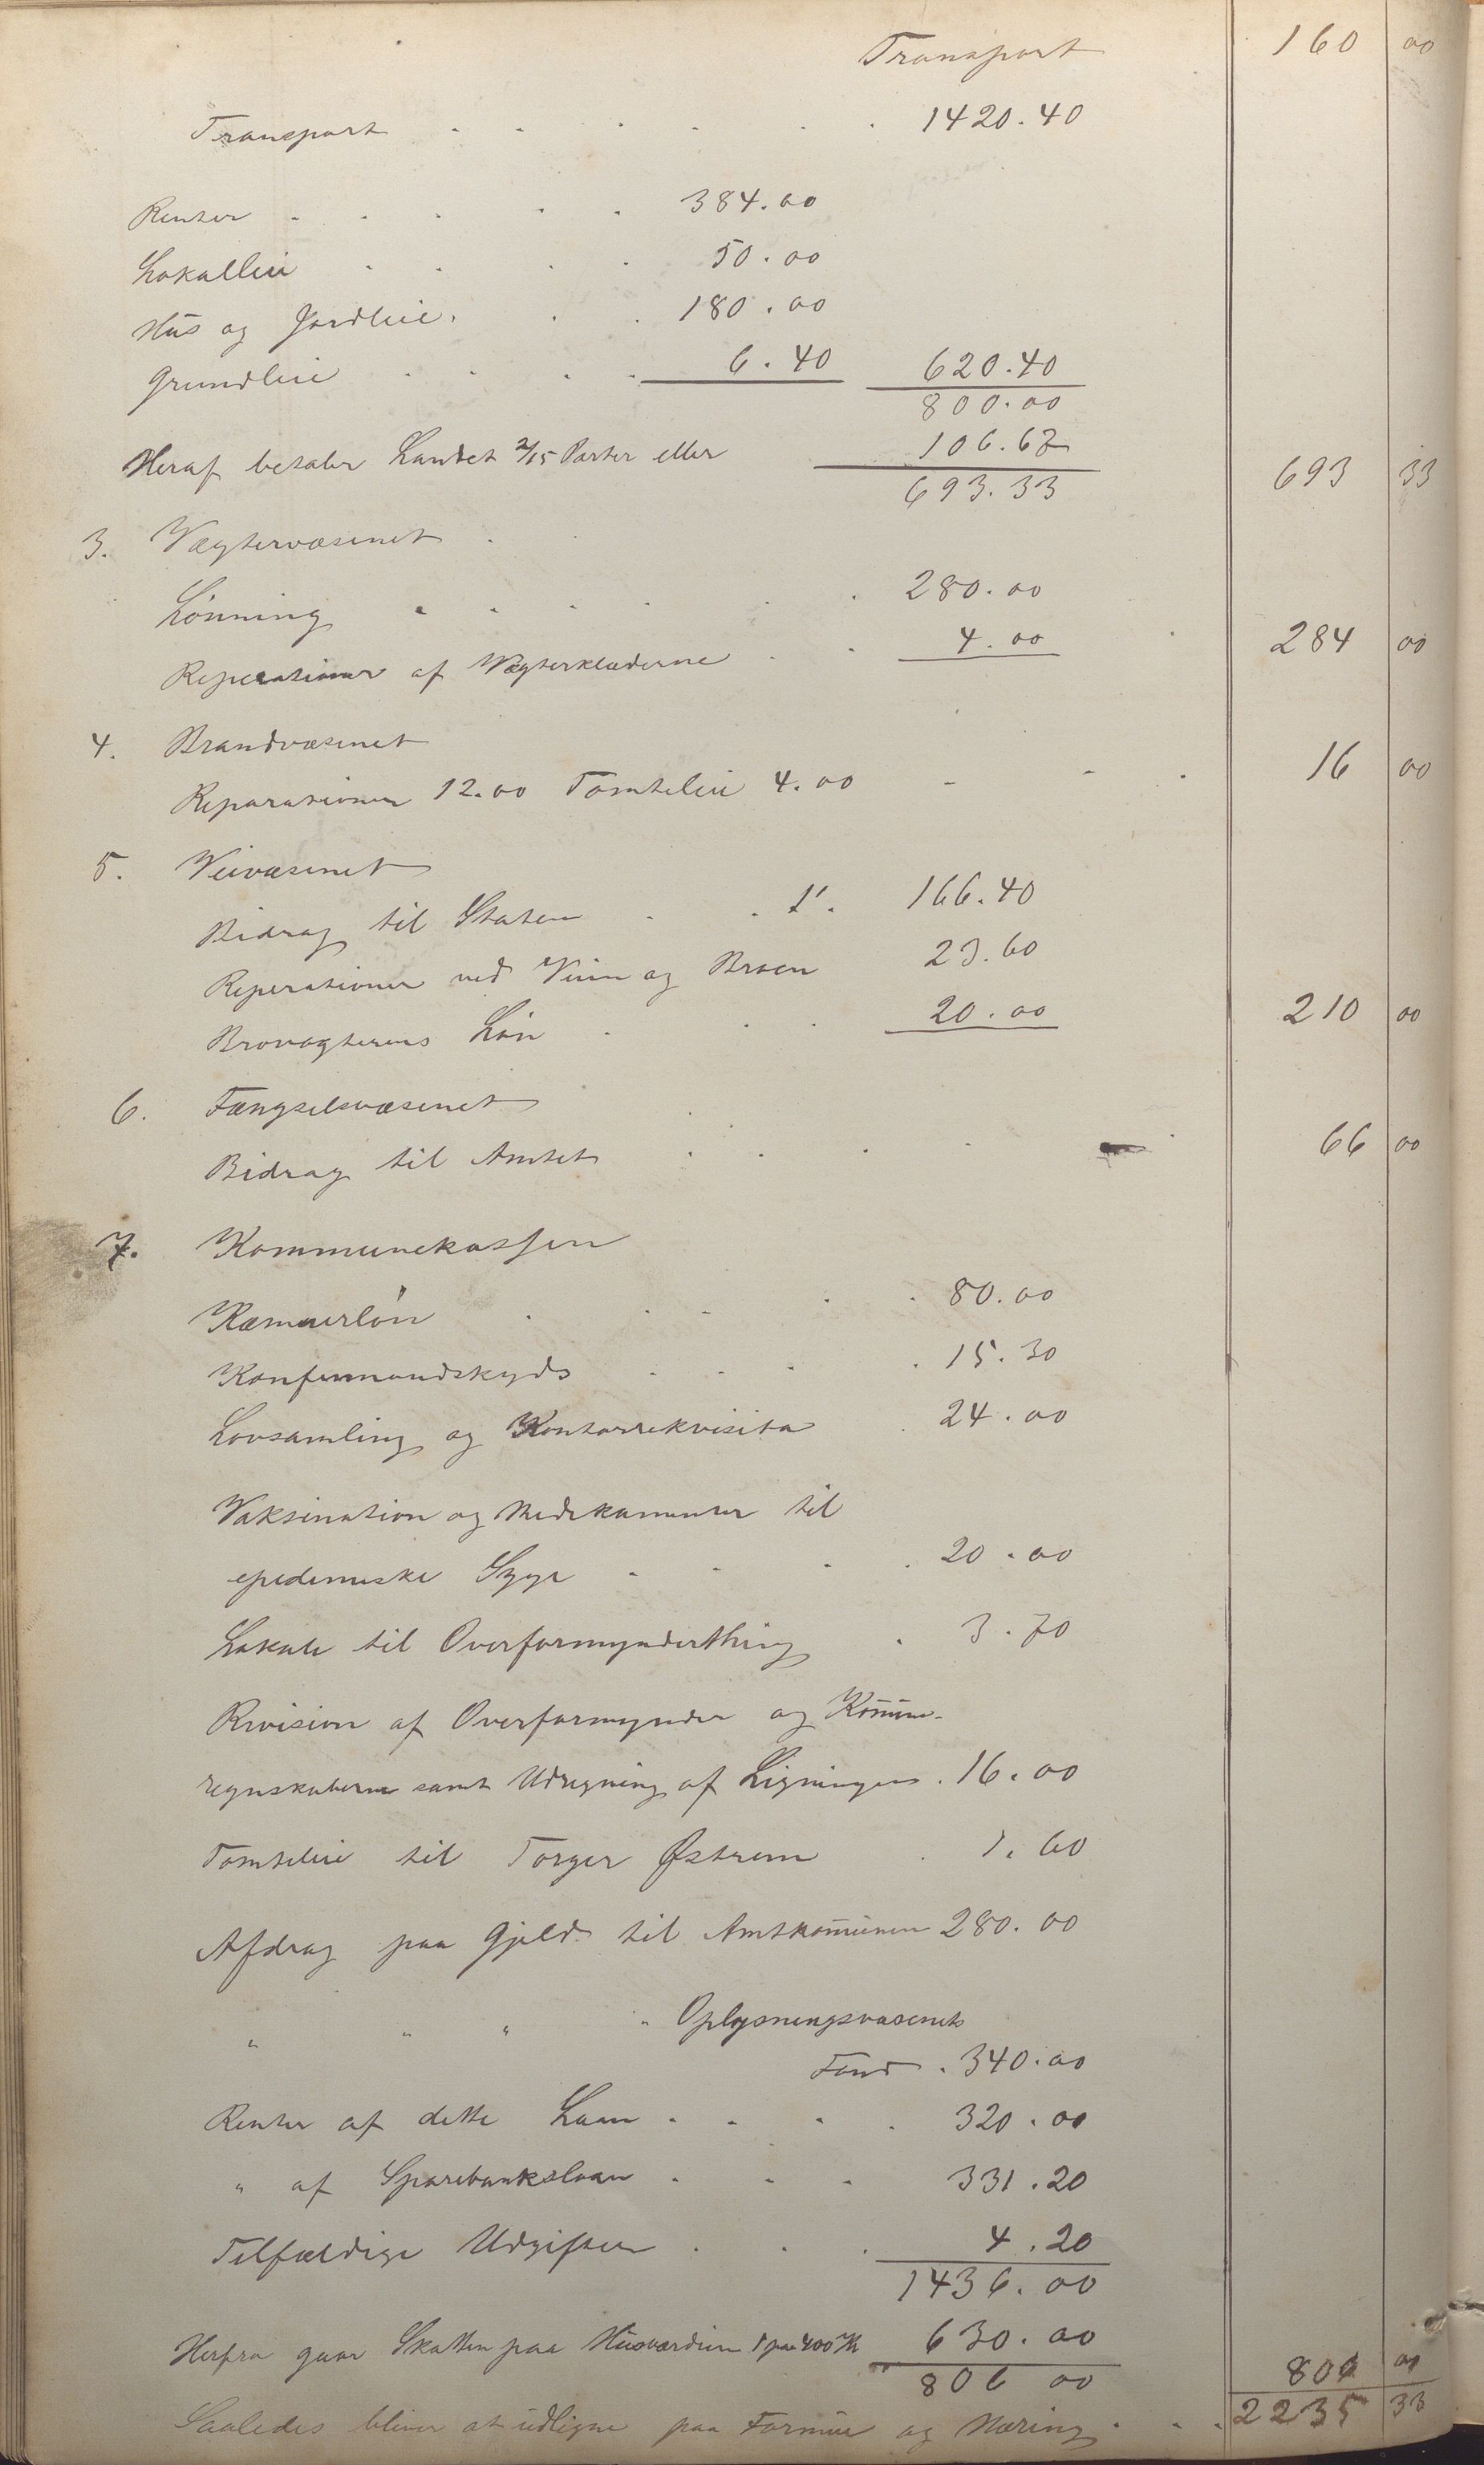 Transport 160 00
Transport . . . . . . 1420.40
Renter . . . . . 384.00
Lokalleie . . . . 50.00
Hus og Jordleie . . . 180.00
Grundleie . . . . 6.40 620.40
800.00
Heraf betaler Landet 2/15 Parter eller 106.67
693.33 693 33
3. Vægtervæsenet .
Lønning . . . . . . 280.00
Reperationer af Vægterklæderne . . 4.00 284 00
4. Brandvæsenet
Reparationer 12.00 Tomteleie 4.00 - - . 16 00
5. Veivæsenet
Bidrag til Staten . . 166.40
Reperationer ved Veien og Broen 23.60
Brovagterens Løn . . . 20.00 210 00
6. Fængselsvæsenet
Bidrag til Amtet . . . . 66 00
7. Kommunekassen
Kæmnerløn . . . . . 80.00
Konfirmandskyds . . . . 15.30
Lovsamling og Kontorrekvisita . 24.00
Vaksination og Medikamenter til
epedemiske Syge . . . . 20.00
Lokale til Overformynderthing . 3.70
Revision af Overformynder og Komune-
regnskaberne samt Udregning af Ligningen . 16.00
Tomteleie til Torger Østrem . 1.60
Afdrag paa Gjeld til Amtskomunen 280.00
" " " " Oplysningsvæsenets
Fond . 340.00
Renter af dette Laan . . . . 320.00
" af Sparebankslaan . . . 331.20
Tilfældige Udgifter . . . 4.20
1436.00
Herfra gaar Skatten paa Husværdien 630.00
806 00 806 00
Saaledes bliver at udligne paa Formue og Næring . . . 2235 33